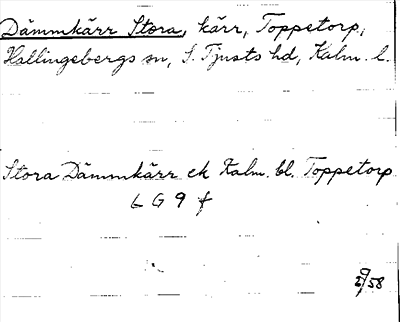 Dämmkärr Stora, kärr, Toppetorp,
Hallingebergs sn, S. Tjusts hd, Kalm. l.
Stora Dämmkärr ek Kalm. bl. Toppetorp
6 G 9 f
58